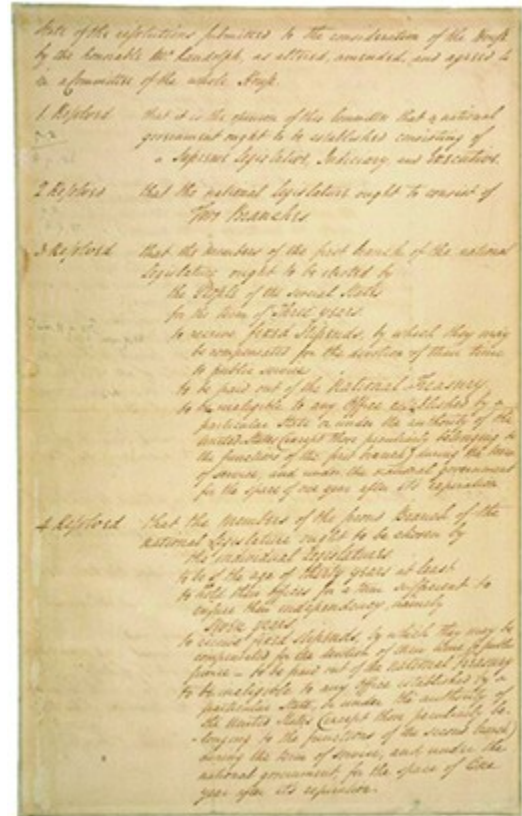 State of the resolutions submitted to the consideration of the House
by the honorable Mr. Randolph, as altered, amended, and agreed to
in a Committee of the whole House.
1 Resolved that it is the opinion of this Committee that a national
government ought to be established consisting of
a Supreme Legislative, Judiciary, and Executive.
2 Resolved that the national Legislature ought to consist of
Two Branches
3 Resolved that the members of the first branch of the national
Legislature ought to be elected by
the People of the several States
for the term of Three years.
to receive fixed stipends, by which they may
be compensated for the devotion of their time
to public service
to be paid out of the National Treasury
to be ineligible to any Office established by a
particular State or under the authority of the
United States (except those peculiarly belonging to
the functions of the first branch) during the term
of service, and under the national government
for the space of one year after its expiration
4 Resolved that the Members of the second Branch of the
national Legislature ought to be chosen by
the individual Legislatures
to be of the age of thirty years at least
to hold their offices for a term sufficient to
ensure their independency, namely
years
to receive fixed stipends, by which they may be
compensated for the devotion of their time to public
service - to be paid out of the National Treasury
to be ineligible to any Office established by a
particular State, or under the authority of
the United States (except those peculiarly be-
longing to the functions of the second branch)
during the term of service, and under the
national government, for the space of One
year after its expiration.